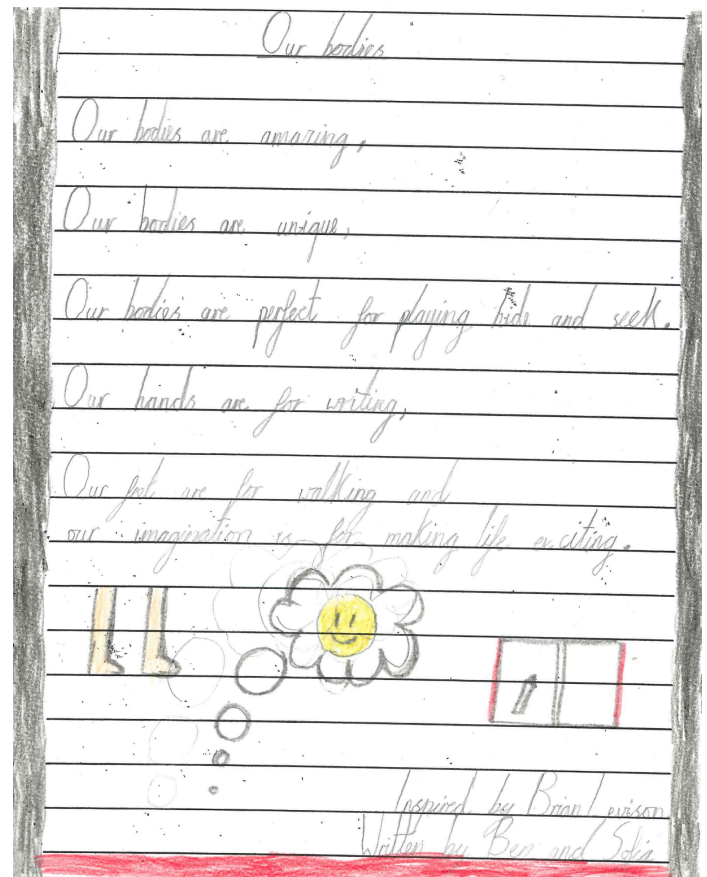 Our bodies
Our bodies are amazing,
Our bodies are unique,
Our bodies are perfect for playing hide and seek.
Our hands are for writing,
Our feet are for walking and
our imagination is for making life exciting.
Inspired by Brian Levison
Written by Ben and Sofia